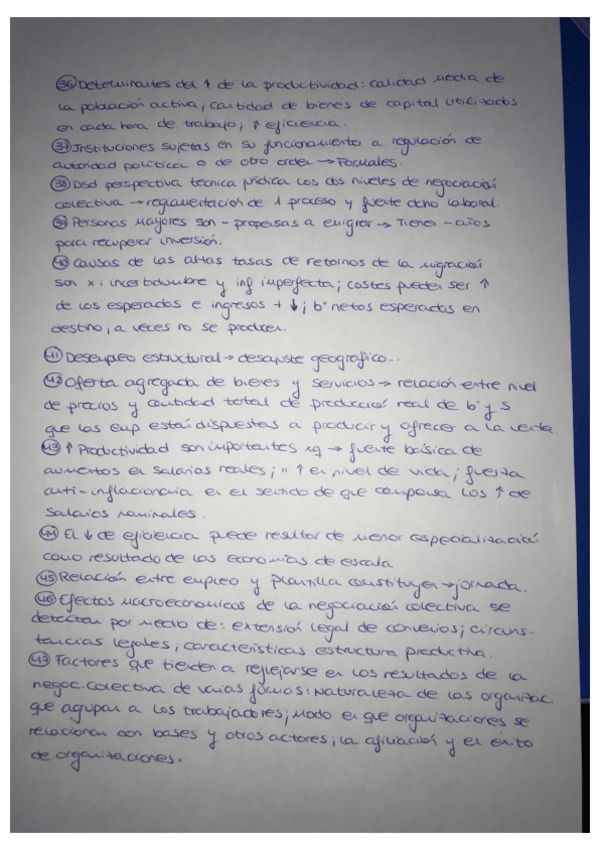 ㊱ Determinantes del ↑ de la productividad: calidad media de
la población activa; cantidad de bienes de capital utilizados
en cada hora de trabajo; ↑ eficiencia.
㊲ Instituciones sujetas en su funcionamiento a regulación de
autoridad política o de otro orden → Formales.
㊳ Dsd perspectiva tecnica jurídica los dos niveles de negociación
colectiva → reglamentación de 1 proceso y fuente dcho laboral.
㊴ Personas mayores son - propensas a emigrar → Tienen - años
para recuperar inversión.
㊵ Causas de las altas tasas de retornos de la migración
son x: incertidumbre y inf imperfecta; costes pueden ser ↑
de los esperados e ingresos + ↓; bº netos esperados en
destino, a veces no se producen.
㊶ Desempleo estructural → desajuste geografico...
㊷ Oferta agregada de bienes y servicios → relación entre nivel
de precios y cantidad total de producción real de bº y s
que las emp. están dispuestas a producir y ofrecer a la venta.
㊸ ↑ Productividad son importantes xq → fuente básica de
aumentos en salarios reales; " ↑ en nivel de vida; fuerza
anti-inflacionaria en el sentido de que compensa los ↑ de
salarios nominales.
㊹ El ↓ de eficiencia puede resultar de menor especialización
como resultado de las economías de escala
㊺ Relación entre empleo y plantilla constituyen → jornada.
㊻ Efectos macroeconomicos de la negociación colectiva se
detectan por medio de: extensión legal de convenios; circuns-
tancias legales; características estructura productiva.
㊼ Factores que tienden a reflejarse en los resultados de la
negoc. colectiva de varias formas: Naturaleza de las organizac.
que agrupan a los trabajadores; modo en que organizaciones se
relacionan con bases y otros actores; la afiliación y el éxito
de organizaciones.